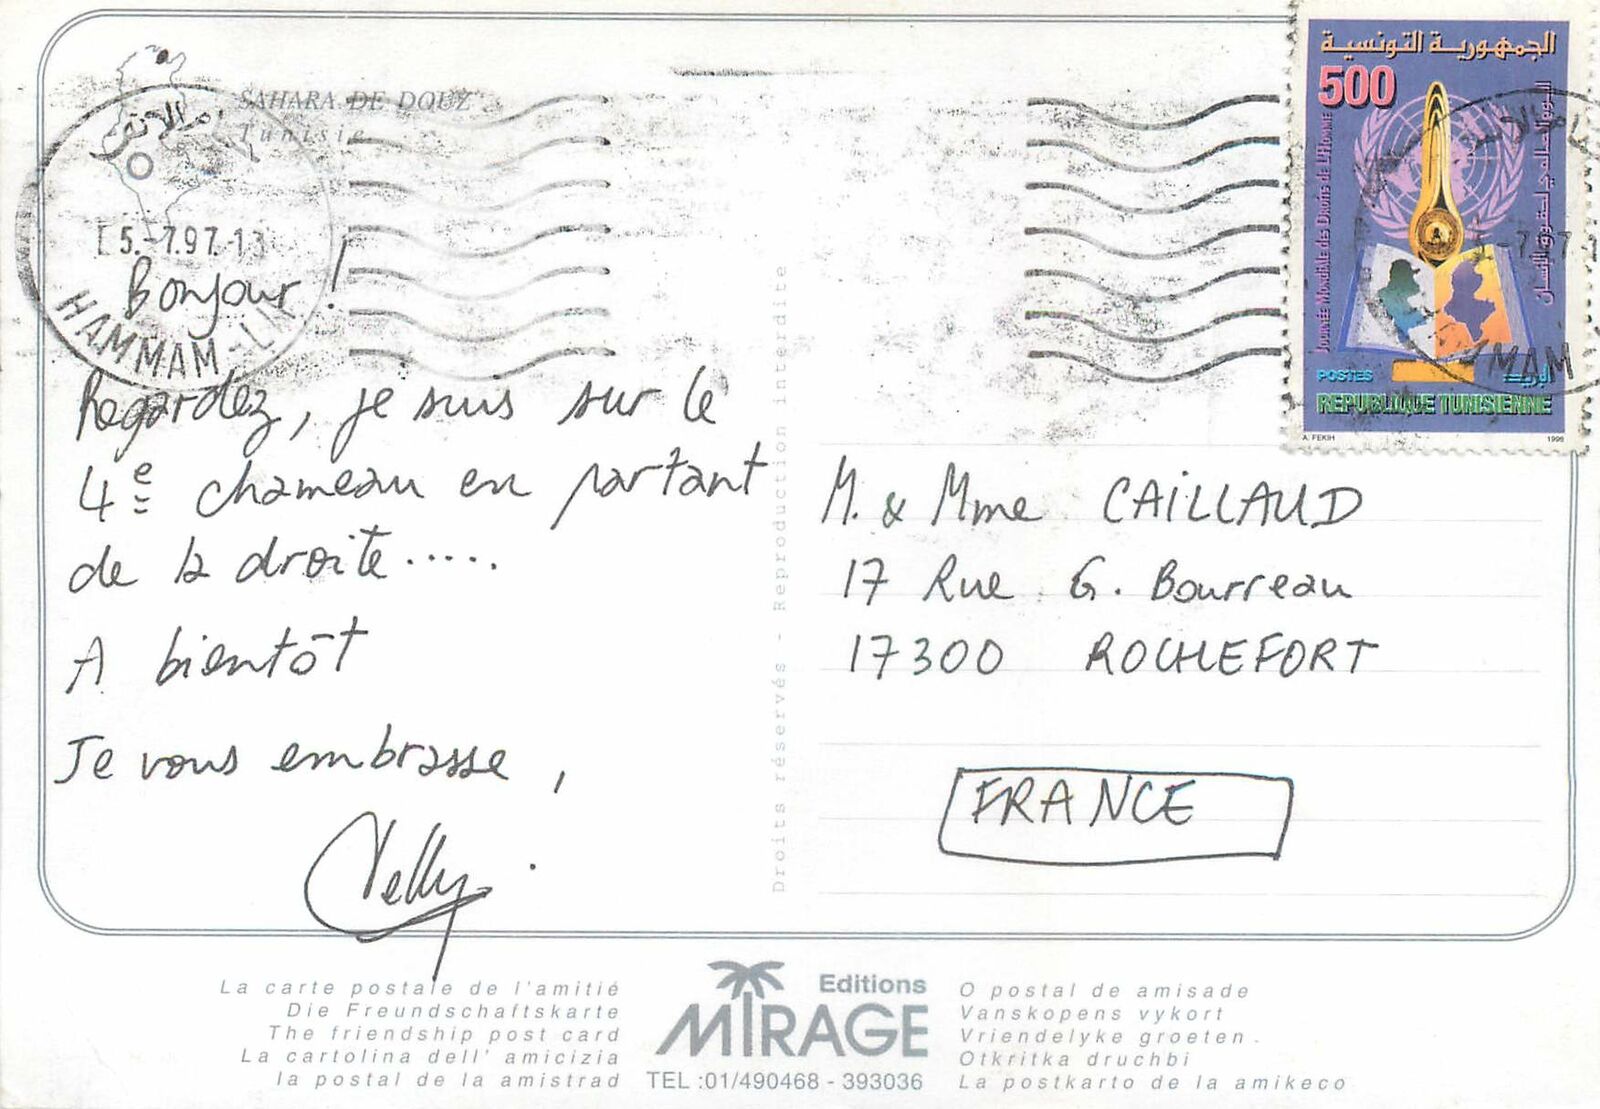 SAHARA DE DOUZ
Tunisie
5.-7.97.-13
HAMMAM-LIF
Bonjour !
Regardez, je suis sur le
4e chameau en partant
de la droite.....
A bientôt
Je vous embrasse,
Nelly.
Droits réservés - Reproduction interdite
الجمهورية التونسية
500
Journée Mondiale des Droits de L'Homme
اليوم العالمي لحقوق الإنسان
POSTES
البريد
REPUBLIQUE TUNISIENNE
A. FEKIH
1996
MAM
M. & Mme CAILLAUD
17 Rue G. Bourreau
17300 ROCHEFORT
FRANCE
La carte postale de l'amitié
Die Freundschaftskarte
The friendship post card
La cartolina dell' amicizia
la postal de la amistrad
Editions
MIRAGE
TEL :01/490468 - 393036
O postal de amisade
Vanskopens vykort
Vriendelyke groeten.
Otkritka druchbi
La postkarto de la amikeco